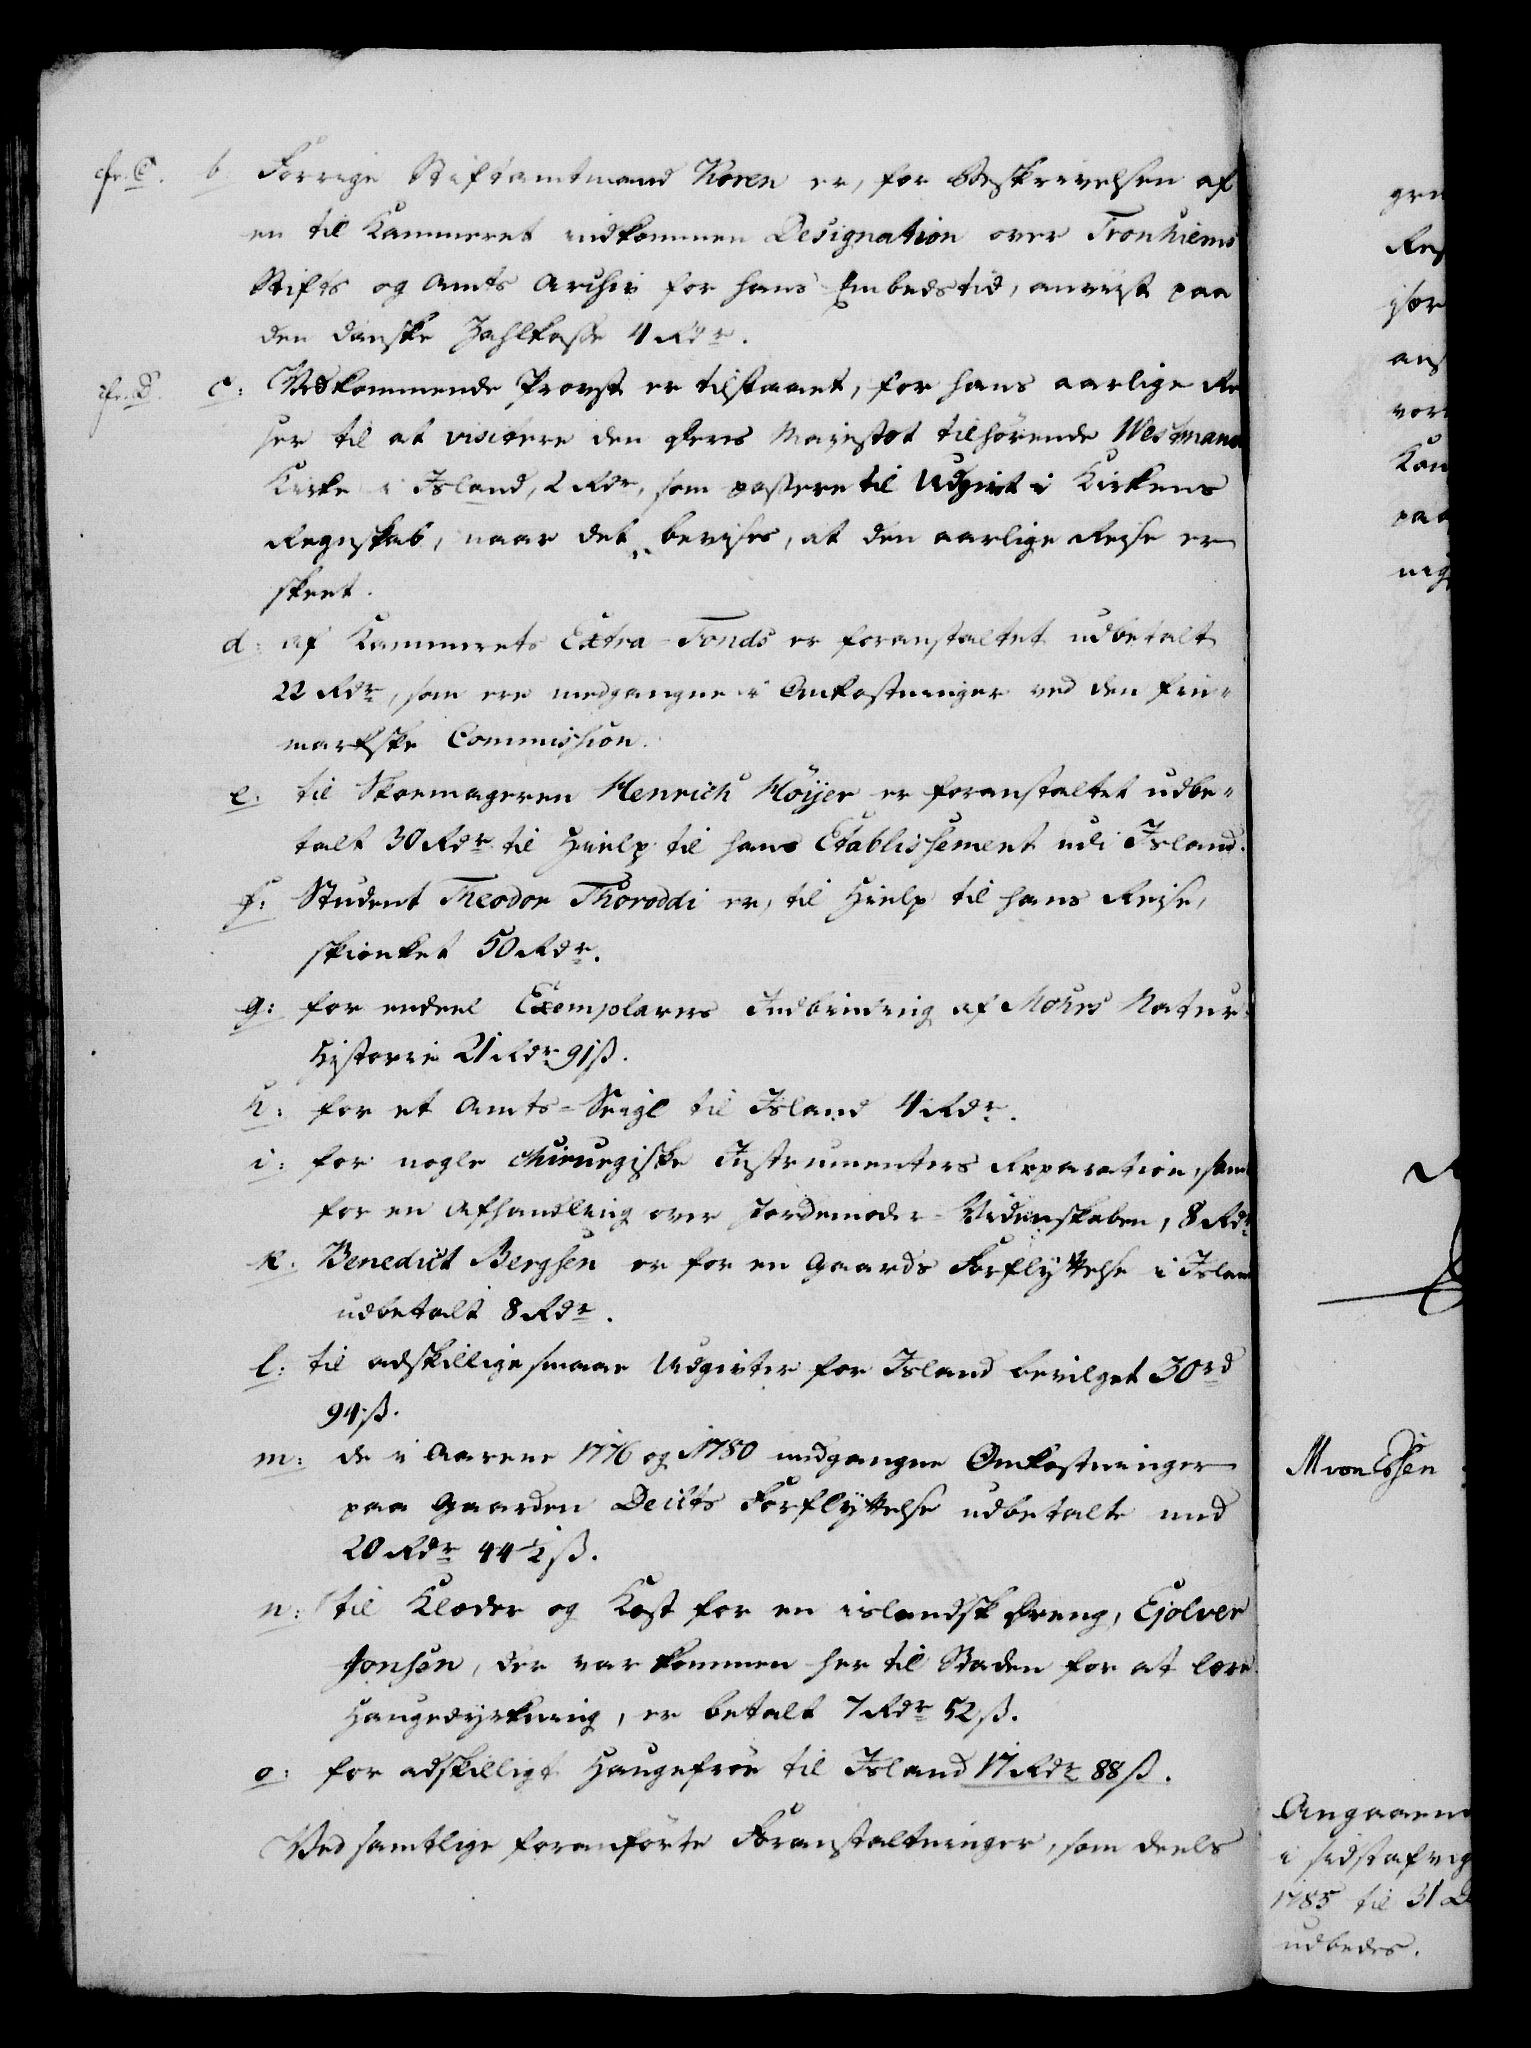 cfr. C. b. Forrige Stiftamtmand Koren er, for Beskrivelsen af
en til Kammeret indkommen Designation over Tronhiems
Stifts og Amts Archiv for hans Embedstid, anviist paa
den danske Zahlkasse 4 Rdr.
cfr. D. c: Vedkommende Provst er tilstaaet, for hans aarlige Re
ser til at visitere den Deres Majestæt tilhørende Westmanø
Kirke i Island, 2 Rdr, som passere til Udgivt i Kirkens
Regnskab, naar det bevises, at den aarlige Reise er
skeet.
d: af Kammerets Extra-Fonds er foranstaltet udbetalt
22 Rdr, som ere medgangne i Omkostninger ved den fin-
markske Commission.
e. til Skoemageren Henrich Höyer er foranstaltet udbe-
talt 30 Rdr til Hielp til hans Etablissement udi Island.
f: Student Theodor Thoroddi er, til Hielp til hans Reise,
skienket 50 Rdr.
g: for endeel Exemplarers Indbinding af Mohrs Natur-
Historie 21 Rdr 91 ß.
h: for et Amts-Seigl til Island 4 Rdr.
i: for nogle chirurgiske Instrumenters Reparation, samt
for en Afhandling over Jordemoder-Videnskaben, 8 Rdr
k. Benedict Bergsen er for en Gaards Forflyttelse i Island
udbetalt 8 Rdr.
l: til adskillige smaae Udgivter for Island bevilget 30 rd
94 ß.
m: de i Aarene 1776 og 1780 medgangne Omkostninger
paa Gaarden Deilts Forflyttelse udbetalte med
20 Rdr 44 1/2 ß.
n: til Klæder og Kost for en islandsk Dreng, Ejolver
Jonsen, der var kommen her til Staden for at lære
Haugedyrkning, er betalt 7 Rdr 52 ß.
o: for adskilligt Haugefrøe til Island 17 Rdr 88 ß.
Ved samtlige foranförte Foranstaltninger, som deels
M von Essen
Angaaen
i sidstafvig
1785 til 31 D
udbedes.